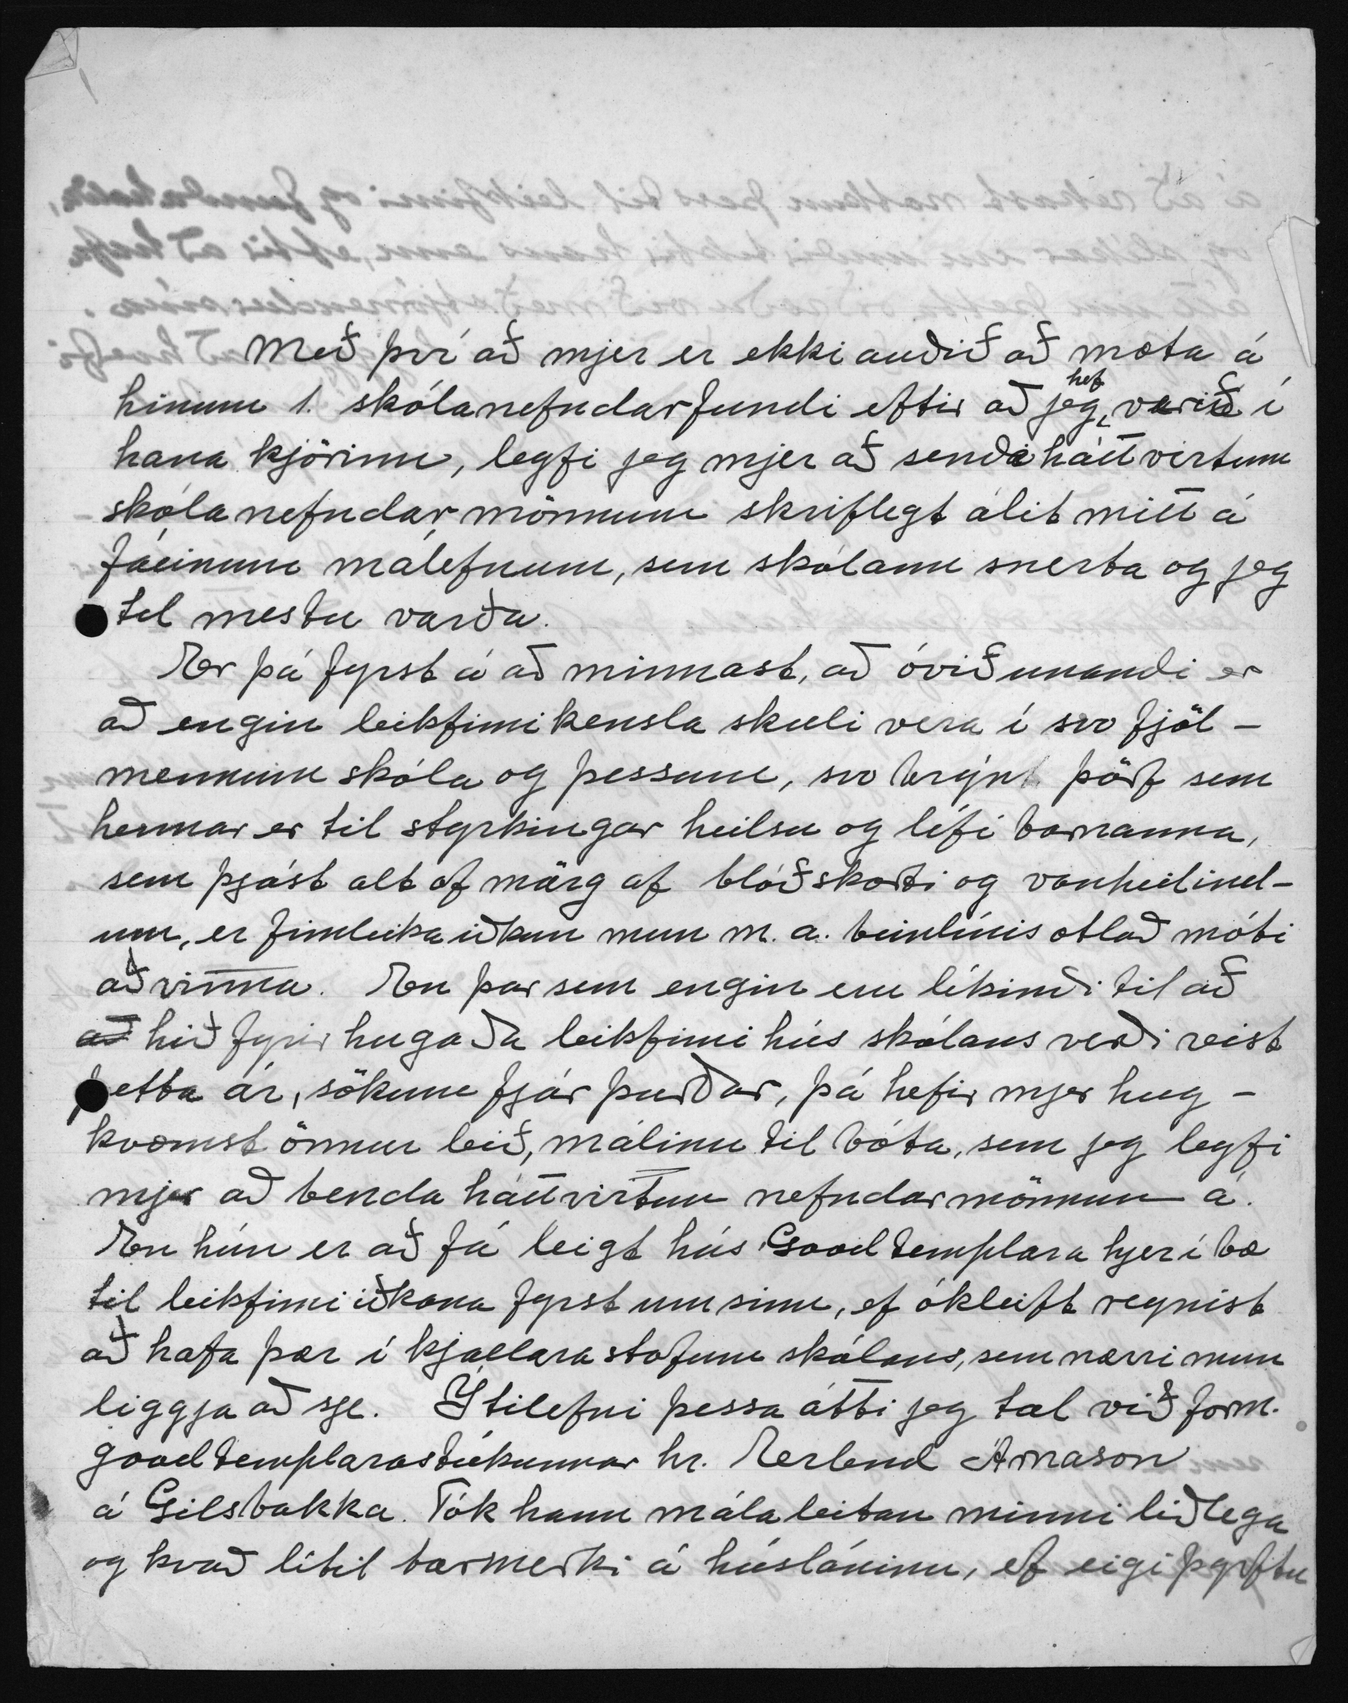 Með því að mjer er ekki auðið að mæta á
hinum 1. skólanefndarfundi eftir að jeg hef verið í
hana kjörinn, leyfi jeg mjer að senda háttvirtum
skólanefndarmönnum skriflegt álit mitt á
fáeinum málefnum, sem skólann snerta og jeg
tel mestu varða.
Er þá fyrst á að minnast, að óviðunandi er
að engin leikfimikensla skuli vera í svo fjöl-
mennum skóla og þessum, svo brýn þörf sem
hennar er til styrkingar heilsu og lífi barnanna,
sem þjást alt of mörg af blóðskorti og vanheilind-
um, er fimleikaiðkun mun m. a. beinlínis ætlað móti
að vinna. En þar sem engin eru líkindi til að
að hið fyrirhugaða leikfimihús skólans verði reist
þetta ár, sökum fjárþurðar, þá hefir mjer hug-
kvæmst önnur leið, málinu til bóta, sem jeg leyfi
mjer að benda háttvirtum nefndarmönnum á.
En hún er að fá leigt hús Goodtemplara hjer í bæ
til leikfimiiðkana fyrst um sinn, ef ókleift reynist
að hafa þær í kjallarastofum skólans, sem nærri mun
liggja að sje. Í tilefni þessa átti jeg tal við form.
goodtemplarastúkunnar hr. Erlend Árnason
á Gilsbakka. Tók hann málaleitan minni liðlega
og kvað lítil tormerki á húsláninu, ef eigi þyrftu